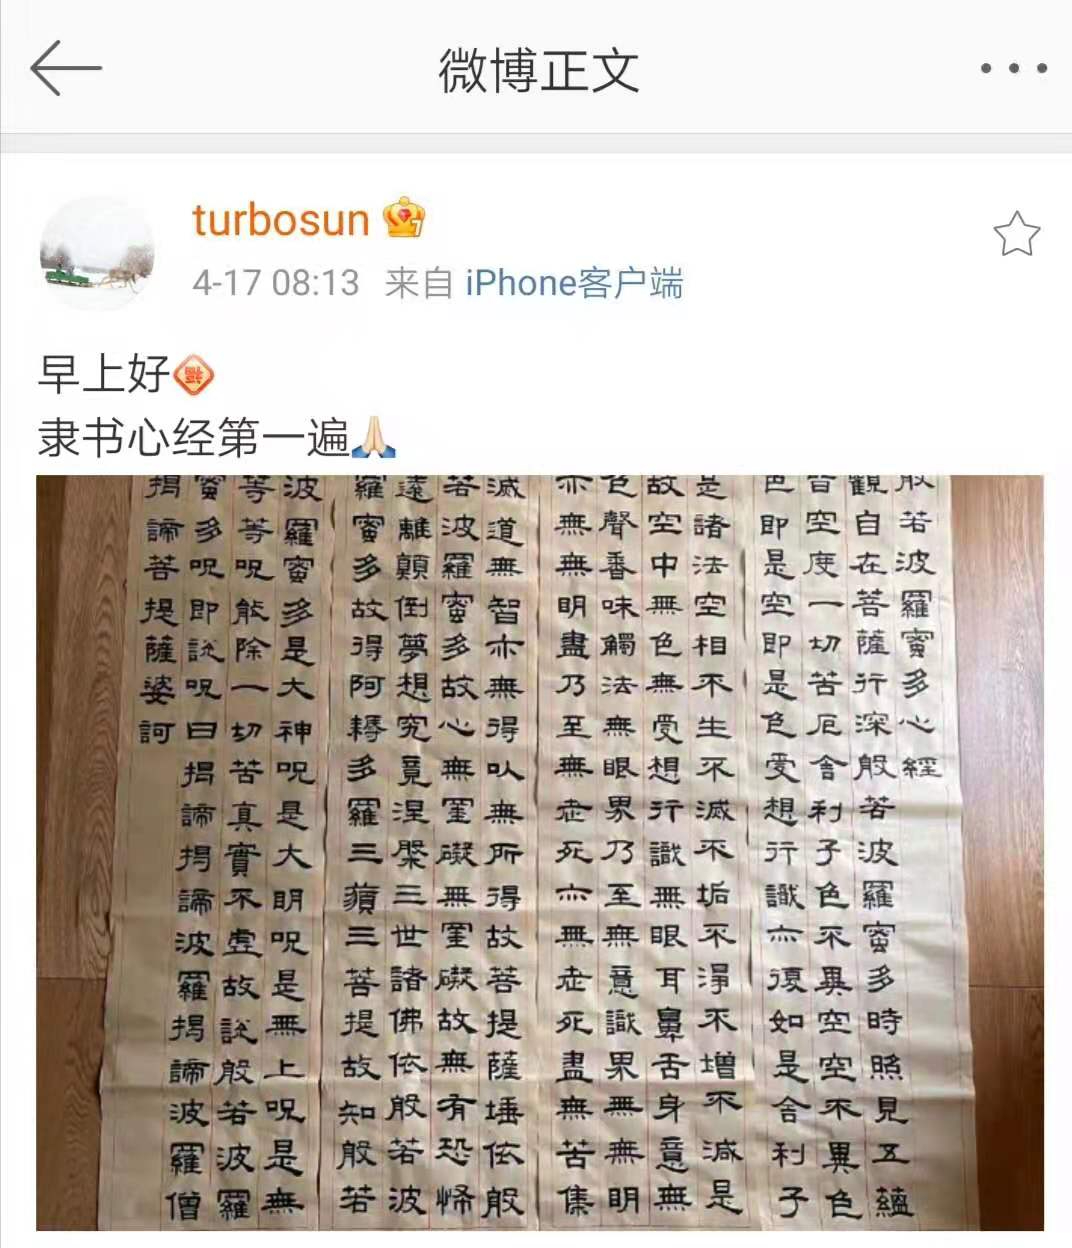 微博正文
turbosun
7
4-17 08:13 来自 iPhone客户端
早上好
隶书心经第一遍
般若波羅蜜多心經
觀自在菩薩行深般若波羅蜜多時照見五蘊
皆空度一切苦厄舍利子色不異空空不異色
色即是空即是色受想行識亦復如是舍利子
是諸法空相不生不滅不垢不淨不增不減是
故空中無色無受想行識無眼耳鼻舌身意無
色聲香味觸法無眼界乃至無意識界無無明
亦無無明盡乃至無老死亦無老死盡無苦集
滅道無智亦無得以無所得故菩提薩埵依般
若波羅蜜多故心無罣礙無罣礙故無有恐怖
遠離顛倒夢想究竟涅槃三世諸佛依般若波
羅蜜多故得阿耨多羅三藐三菩提故知般若
波羅蜜多是大神呪是大明呪是無上呪是無
等等呪能除一切苦真實不虛故說般若波羅
蜜多呪即說呪曰揭諦揭諦波羅揭諦波羅僧
揭諦菩提薩婆訶